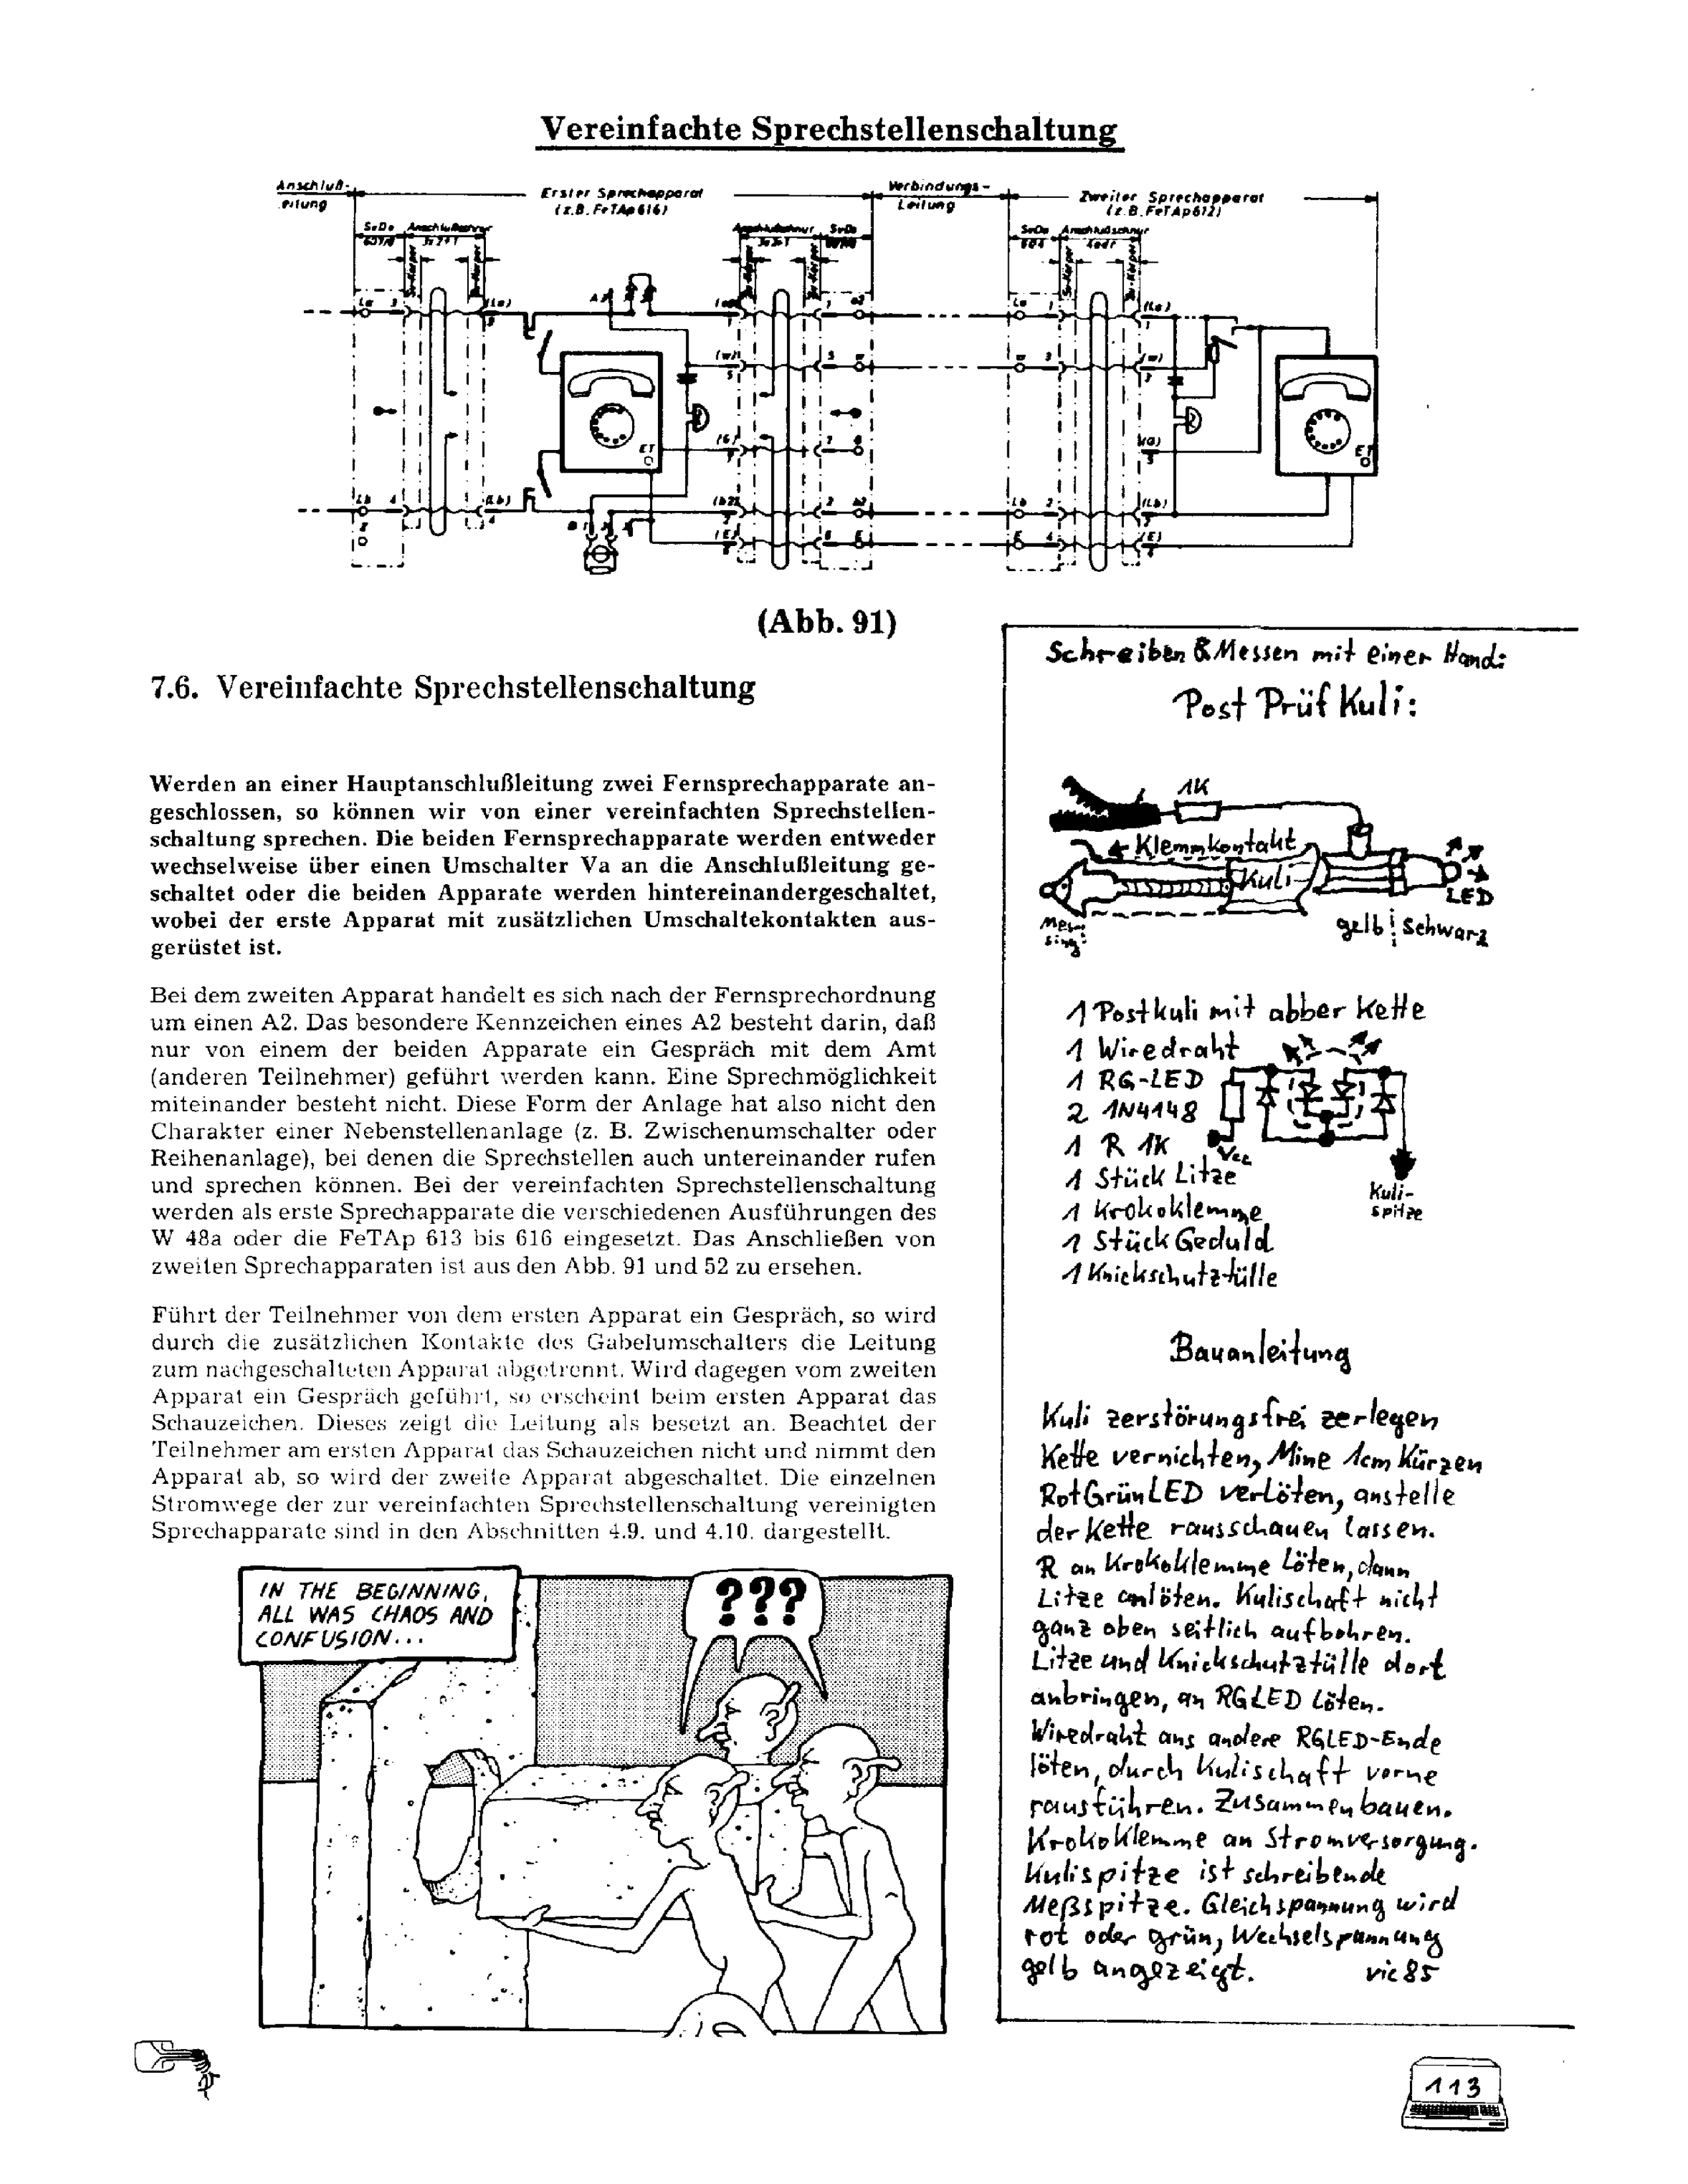 Vereinfachte Sprechstellenschaltung
Anschluß-
Erster Sprechapparat
(z.B. FeTAp 616)
Verbindungs-
Leitung
Zweiter Sprechapparat
(z.B. FeTAp 612)
(Abb. 91)
7.6. Vereinfachte Sprechstellenschaltung
Werden an einer Hauptanschlußleitung zwei Fernsprechapparate an-
geschlossen, so können wir von einer vereinfachten Sprechstellen-
schaltung sprechen. Die beiden Fernsprechapparate werden entweder
wechselweise über einen Umschalter Va an die Anschlußleitung ge-
schaltet oder die beiden Apparate werden hintereinandergeschaltet,
wobei der erste Apparat mit zusätzlichen Umschaltekontakten aus-
gerüstet ist.
Bei dem zweiten Apparat handelt es sich nach der Fernsprechordnung
um einen A2. Das besondere Kennzeichen eines A2 besteht darin, daß
nur von einem der beiden Apparate ein Gespräch mit dem Amt
(anderen Teilnehmer) geführt werden kann. Eine Sprechmöglichkeit
miteinander besteht nicht. Diese Form der Anlage hat also nicht den
Charakter einer Nebenstellenanlage (z. B. Zwischenumschalter oder
Reihenanlage), bei denen die Sprechstellen auch untereinander rufen
und sprechen können. Bei der vereinfachten Sprechstellenschaltung
werden als erste Sprechapparate die verschiedenen Ausführungen des
W 48a oder die FeTAp 613 bis 616 eingesetzt. Das Anschließen von
zweiten Sprechapparaten ist aus den Abb. 91 und 52 zu ersehen.
Führt der Teilnehmer von dem ersten Apparat ein Gespräch, so wird
durch die zusätzlichen Kontakte des Gabelumschalters die Leitung
zum nachgeschalteten Apparat abgetrennt. Wird dagegen vom zweiten
Apparat ein Gespräch geführt, so erscheint beim ersten Apparat das
Schauzeichen. Dieses zeigt die Leitung als besetzt an. Beachtet der
Teilnehmer am ersten Apparat das Schauzeichen nicht und nimmt den
Apparat ab, so wird der zweite Apparat abgeschaltet. Die einzelnen
Stromwege der zur vereinfachten Sprechstellenschaltung vereinigten
Sprechapparate sind in den Abschnitten 4.9. und 4.10. dargestellt.
IN THE BEGINNING,
ALL WAS CHAOS AND
CONFUSION...
???
Schreiben & Messen mit einer Hand:
Post Prüf Kuli:
1K
Klemmkontakt
Kuli
LED
Mes-
sing
gelb Schwarz
1 Postkuli mit abber Kette
1 Wiredraht
1 RG-LED
2 1N4148
1 R 1K
1 Stück Litze
1 Krokoklemme
1 Stück Geduld
1 Knickschutztülle
Vcc
Kuli-
spitze
Bauanleitung
Kuli zerstörungsfrei zerlegen
Kette vernichten, Mine 1cm kürzen
RotGrünLED verlöten, anstelle
der Kette rausschauen lassen.
R an Krokoklemme löten, dann
Litze anlöten. Kulischaft nicht
ganz oben seitlich aufbohren.
Litze und Knickschutztülle dort
anbringen, an RGLED löten.
Wiredraht ans andere RGLED-Ende
löten, durch Kulischaft vorne
rausführen. Zusammenbauen.
Krokoklemme an Stromversorgung.
Kulispitze ist schreibende
Meßspitze. Gleichspannung wird
rot oder grün, Wechselspannung
gelb angezeigt. vic85
113